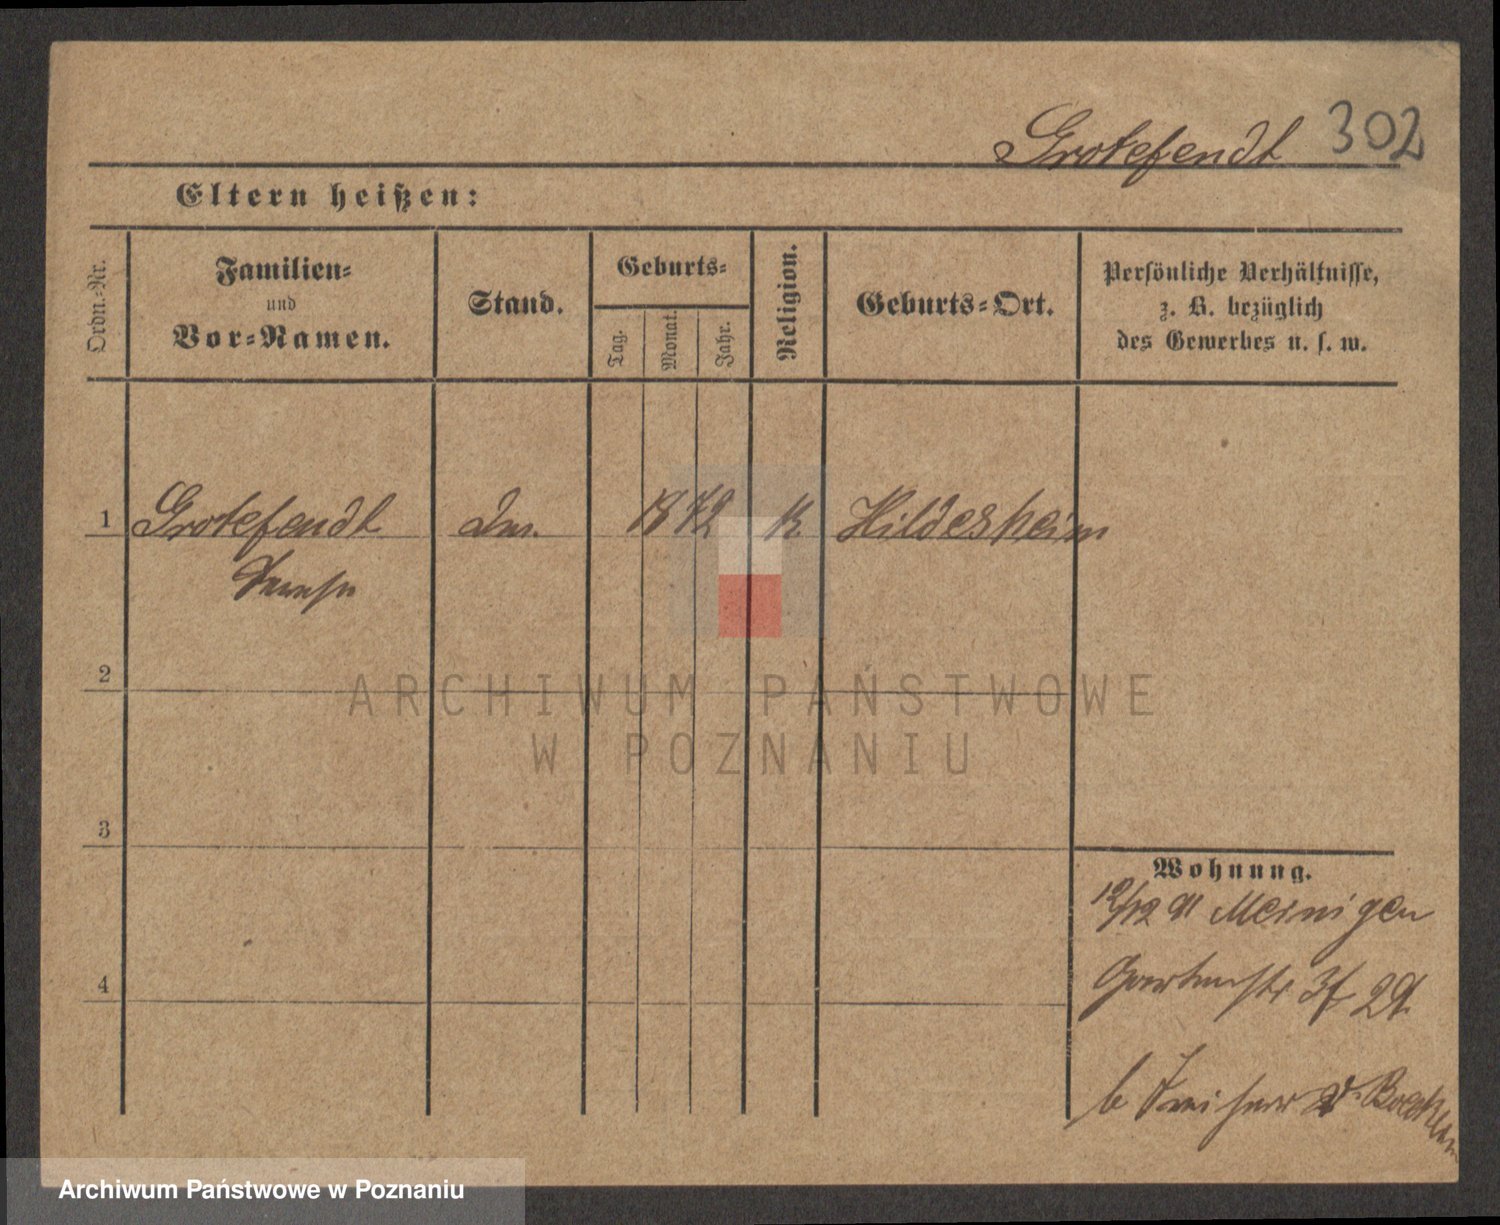 Grotefendt 302
Eltern heißen:
Ordn.-Nr.
Familien-
und
Vor-Namen.
Stand.
Geburts-
Tag.
Monat.
Jahr.
Religion.
Geburts-Ort.
Persönliche Verhältnisse,
z. B. bezüglich
des Gewerbes u. s. w.
1 Grotefendt 1872 K. Hildesheim
2
3
4
Wohnung.
12/12 91 Meinigen
Gartenstr 3f 2Q.
b Freiherr v.
ARCHIWUM PAŃSTWOWE
W POZNANIU
Archiwum Państwowe w Poznaniu